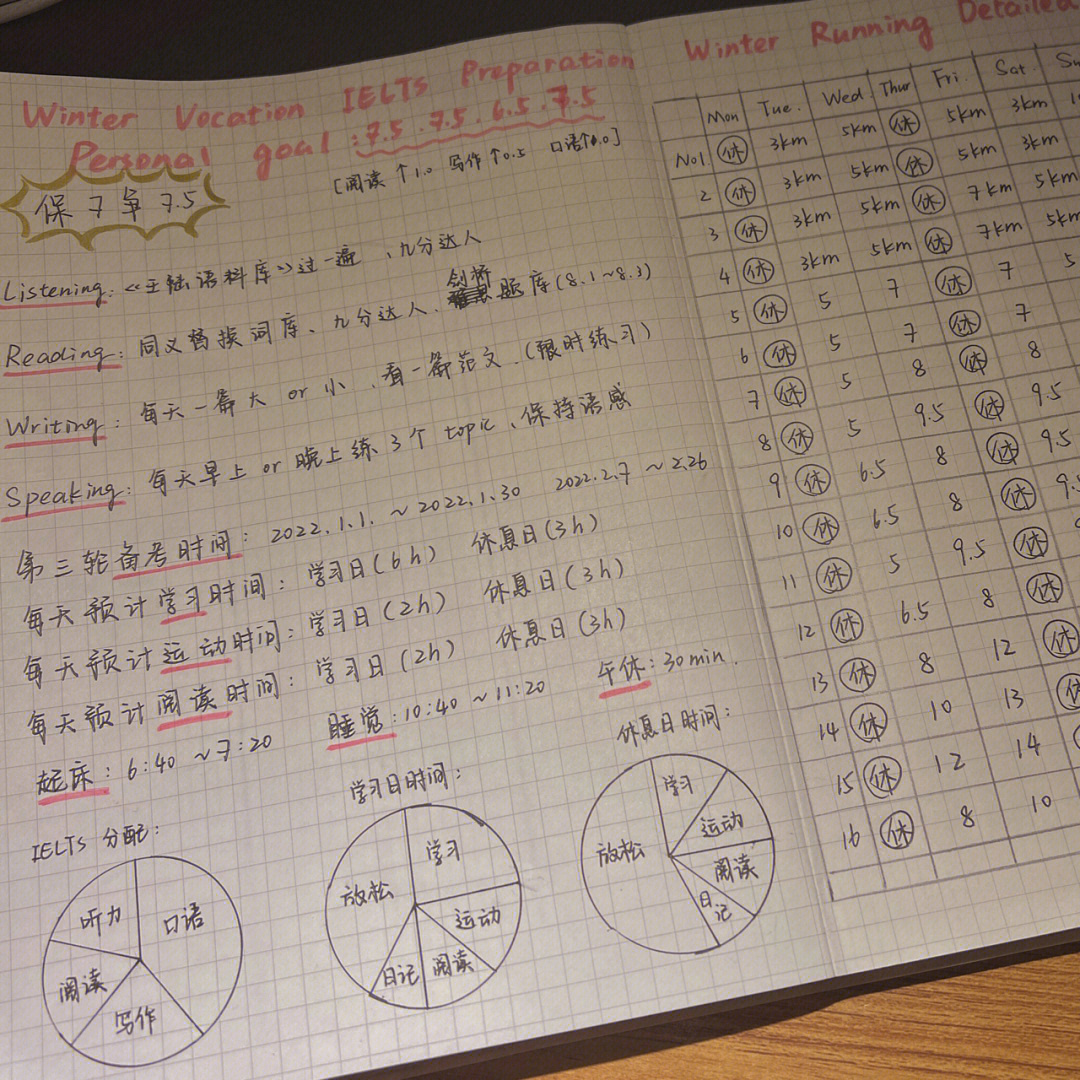 Winter Vocation IELTS Preparation
Personal goal: 7.5 . 7.5 . 6.5 . 7.5
[阅读 ↑1.0 写作 ↑0.5 口语↑1.0]
保 7 争 7.5
Listening: 《王陆语料库》过一遍、九分达人
Reading: 同义替换词库、九分达人、剑桥题库(8.1~8.3)
Writing: 每天一篇大 or 小、看一篇范文.(限时练习)
Speaking: 每天早上 or 晚上练3个 topic、保持语感
第三轮备考时间: 2022.1.1. ~ 2022.1.30 2022.2.7 ~ 2.26
每天预计学习时间: 学习日(6h) 休息日(3h)
每天预计运动时间: 学习日(2h) 休息日(3h)
每天预计阅读时间: 学习日(2h) 休息日(3h)
起床: 6:40 ~ 7:20 睡觉: 10:40 ~ 11:20 午休: 30min.
IELTS 分配:
听力
口语
阅读
写作
学习日时间:
学习
放松
运动
日记
阅读
休息日时间:
学习
放松
运动
阅读
日记
Winter Running Detailed
Mon Tue. Wed. Thur Fri. Sat
No1. 休 3km 5km 休 5km 3km
2 休 3km 5km 休 5km 3km
3 休 3km 5km 休 7km 5km
4 休 3km 5km 休 7km 5km
5 休 5 7 休 7 5
6 休 5 7 休 7
7 休 5 8 休 8
8 休 5 9.5 休 9.5
9 休 6.5 8 休 9.5
10 休 6.5 8 休
11 休 5 9.5 休
12 休 6.5 8 休
13 休 8 12 休
14 休 10 13 休
15 休 12 14
16 休 8 10